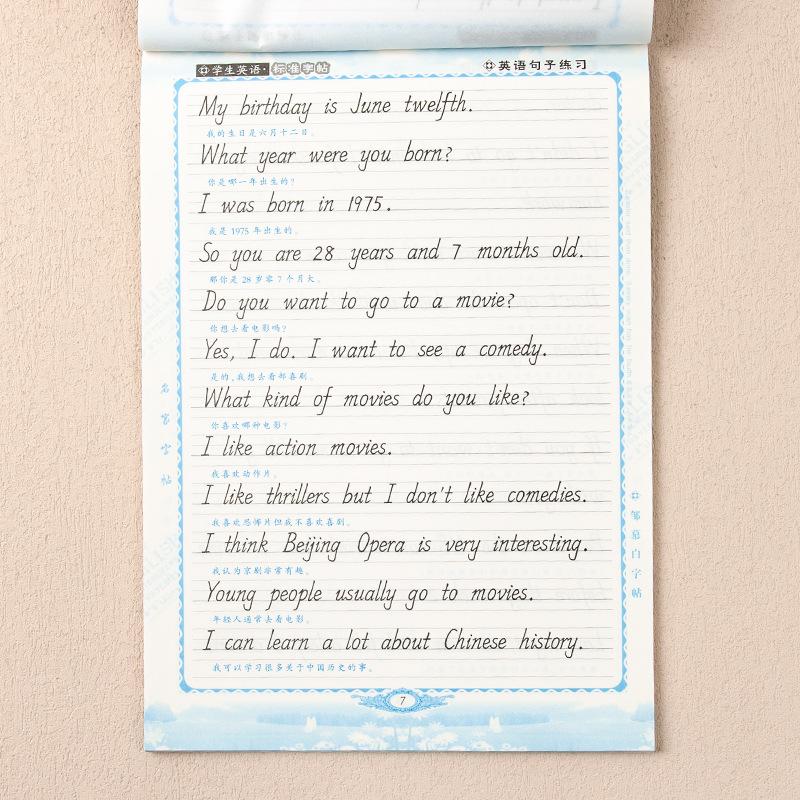 学生英语·标准字帖
英语句子练习
My birthday is June twelfth.
我的生日是六月十二日。
What year were you born?
你是哪一年出生的?
I was born in 1975.
我是 1975 年出生的。
So you are 28 years and 7 months old.
那你是 28 岁零 7 个月大。
Do you want to go to a movie?
你想去看电影吗?
Yes, I do. I want to see a comedy.
是的,我想去看部喜剧。
What kind of movies do you like?
你喜欢哪种电影?
I like action movies.
我喜欢动作片。
I like thrillers but I don't like comedies.
我喜欢恐怖片但我不喜欢喜剧。
I think Beijing Opera is very interesting.
我认为京剧非常有趣。
Young people usually go to movies.
年轻人通常去看电影。
I can learn a lot about Chinese history.
我可以学习很多关于中国历史的事。
名家字帖
邹慕白字帖
7